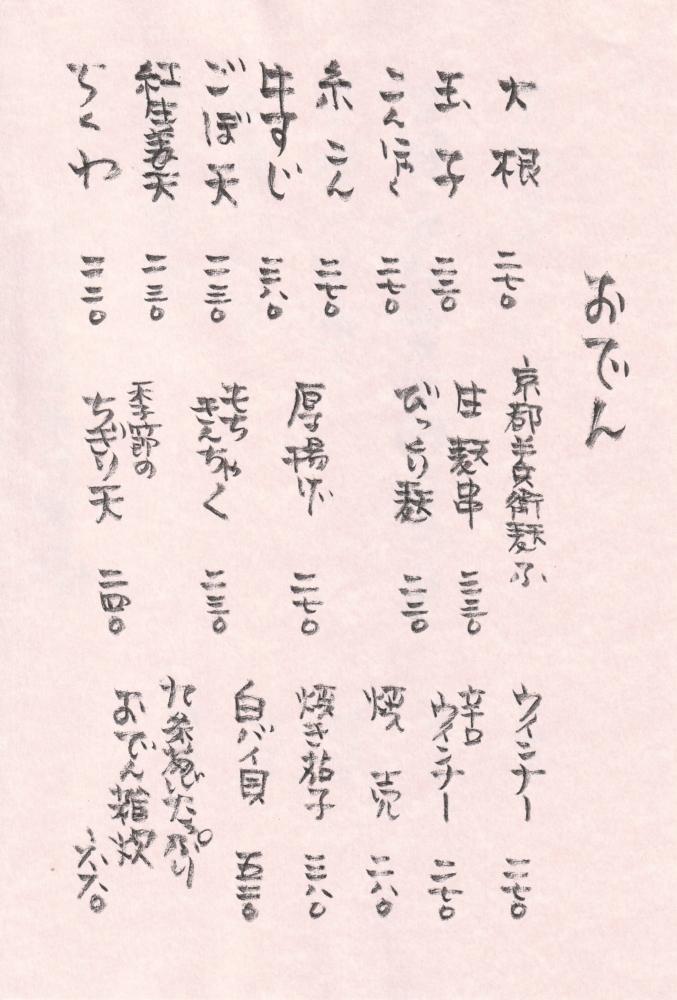 おでん
大根 二七〇
玉子 二三〇
こんにゃく 二七〇
糸こん 二七〇
牛すじ 三八〇
ごぼ天 二三〇
紅生姜天 二三〇
ちくわ 二二〇
京都半兵衛麸ふ
生麸串 三三〇
びっくり麸 二三〇
厚揚げ 二七〇
もち
きんちゃく 二三〇
季節の
ちぎり天 二四〇
ウインナー 二七〇
辛口
ウインナー 二七〇
焼売 二八〇
焼き茄子 三八〇
白バイ貝 五三〇
九条ねぎたっぷり
おでん雑炊 六八〇